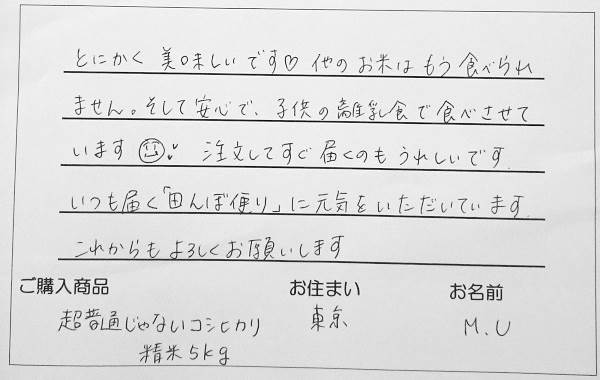 とにかく 美味しいです♡ 他のお米はもう食べられ
ません。そして安心で、子供の離乳食で食べさせて
います 注文してすぐ届くのもうれしいです。
いつも届く「田んぼ便り」に元気をいただいています。
これからもよろしくお願いします
ご購入商品 お住まい お名前
超普通じゃないコシヒカリ 東京 M.U
精米5kg